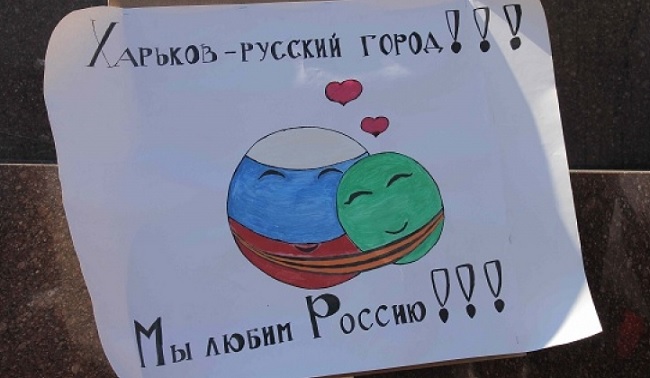 Харьков - русский город!!!
Мы любим Россию!!!